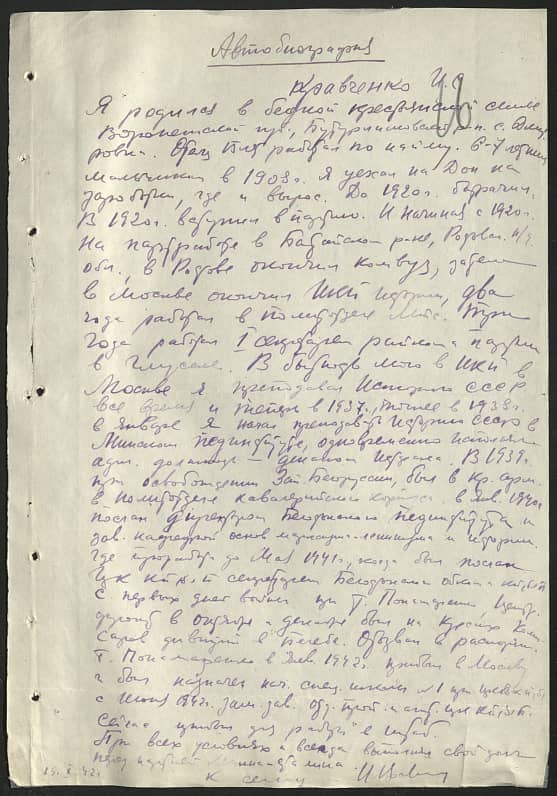 Автобиография
Кравченко И.С.
Я родился в бедной крестьянской семье
Воронежской губ., Бутурлиновск р-н. с.
ровка. Отец работал по найму. 6-7 летним
мальчиком в 1908 г. я уехал на Дон на
заработки, где и вырос. До 1920 г. батрачил.
В 1920 г. вступил в партию. И начиная с 1920 г.
на партработе в Батайском р-не, Ростов. н/д
обл., в Ростове окончил комвуз, затем
в Москве окончил ИКП истории, два
года работал в политотделе Мтс. Три
года работал I секретарем райкома партии
в Глусске. В бытность мою в ИКП в
Москве я преподавал Историю СССР
все время и в 1937, в 1938 г.
в январе я начал преподавать Историю СССР в
Минском пединституте, одновременно исполнял
адм. должность – декана истфака. В 1939 г.
при освобождении Зап. Белоруссии, был в кр. арм.
в политотделе кавалерийского корпуса в янв. 1940 г.
послан директором Белостокского пединститута и
зав. кафедрой основ марксизма-ленинизма и истории.
где проработал до Мая 1941 г., когда был послан
ЦК КП(б)Б секретарем Белостокского обкома
С первых дней войны при т. Пономаренко,
в октябре и декабре был на курсах
дивизий в. Отозван в распоряж.
т. Пономаренко в 1942 г. прибыл в Москву
и был назначен нач. спец. школы №1 при ЦК КП(б)Б
с Июня 1942 г. зам. зав. отд. проп. и агит. ЦК КП(б)Б.
Сейчас прибыл для работы в штаб.
При всех условиях и всегда выполнял свой долг
перед партией
К сему
19. X. 42 г.